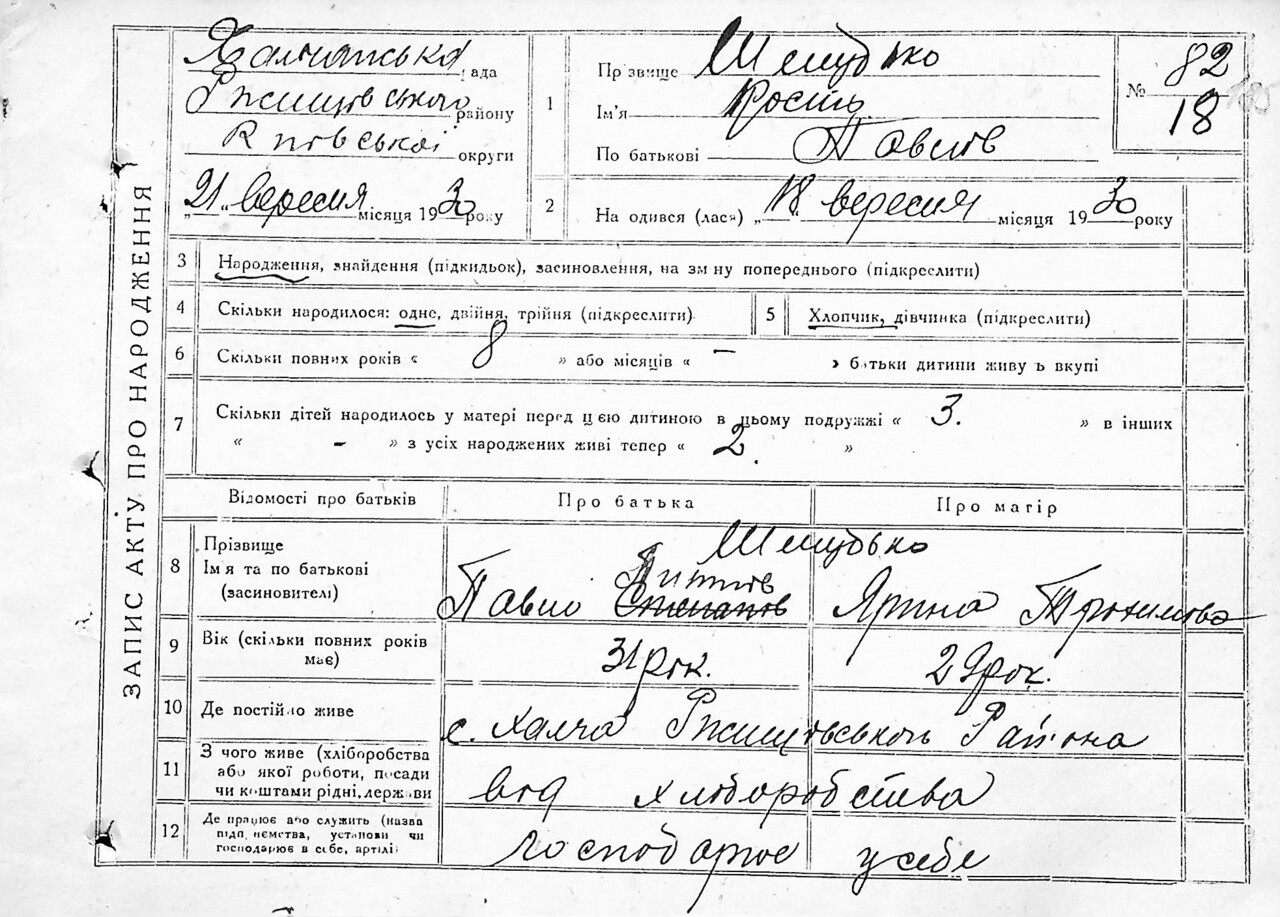 Халчанська рада
Ржищівського району
Київської округи
„21" вересня місяця 1930 року
1
Прізвище Шепудько
Ім'я Кость
По батькові Павлів
№ 82
18
185
2
Народився (лася) „18" вересня місяця 1930 року
ЗАПИС АКТУ ПРО НАРОДЖЕННЯ
3 Народження, знайдення (підкидьок), засиновлення, на зміну попереднього (підкреслити)
4 Скільки народилося: одне, двійня, трійня (підкреслити)
5 Хлопчик, дівчинка (підкреслити)
6 Скільки повних років « 8 » або місяців « – » батьки дитини живуть вкупі
7 Скільки дітей народилось у матері перед цією дитиною в цьому подружжі « 3. » в інших
« – » з усіх народжених живі тепер « 2. »
Відомості про батьків Про батька Про матір
8 Прізвище Шепудько
Ім'я та по батькові
(засиновителі) Павло Степанів Ярина Трохимова
9 Вік (скільки повних років
має) 31 рок. 29 рок.
10 Де постійно живе с. Халча Ржищівського Району
11 З чого живе (хліборобства
або якої роботи, посади
чи коштами рідні, держави від хліборобства
12 Де працює або служить (назва
підприємства, установи чи
господарює в себе, артілі) господарює у себе